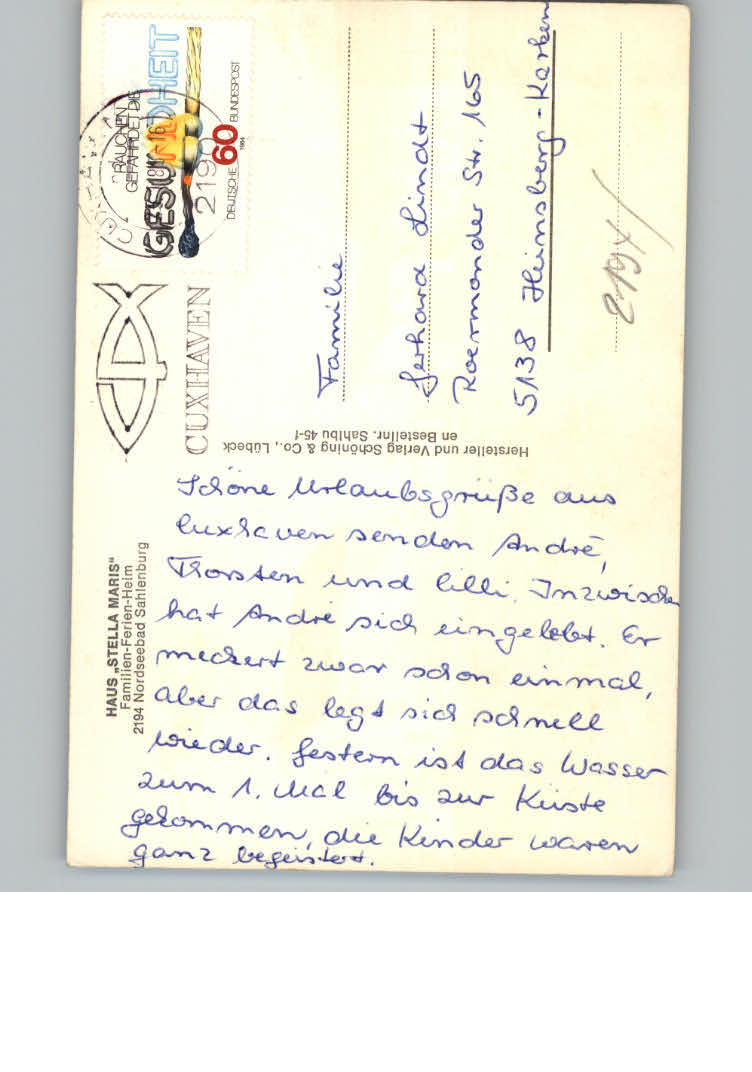 HAUS „STELLA MARIS“
Familien-Ferien-Heim
2194 Nordseebad Sahlenburg
Schöne Urlaubsgrüße aus
Cuxhaven senden André,
Thorsten und Cilli. Inzwischen
hat André sich eingelebt. Er
meckert zwar schon einmal,
aber das legt sich schnell
wieder. Gestern ist das Wasser
zum 1. Mal bis zur Küste
gekommen, die Kinder waren
ganz begeistert.
Hersteller und Verlag Schöning & Co., Lübeck
en Bestellnr. Sahlbu 45-f
CUXHAVEN
2190
RAUCHEN
GEFÄHRDET DIE
GESUNDHEIT
DEUTSCHE 60 BUNDESPOST
1984
Familie
Gerhard Lindt
Roermonder Str. 165
5138 Heinsberg-Karken